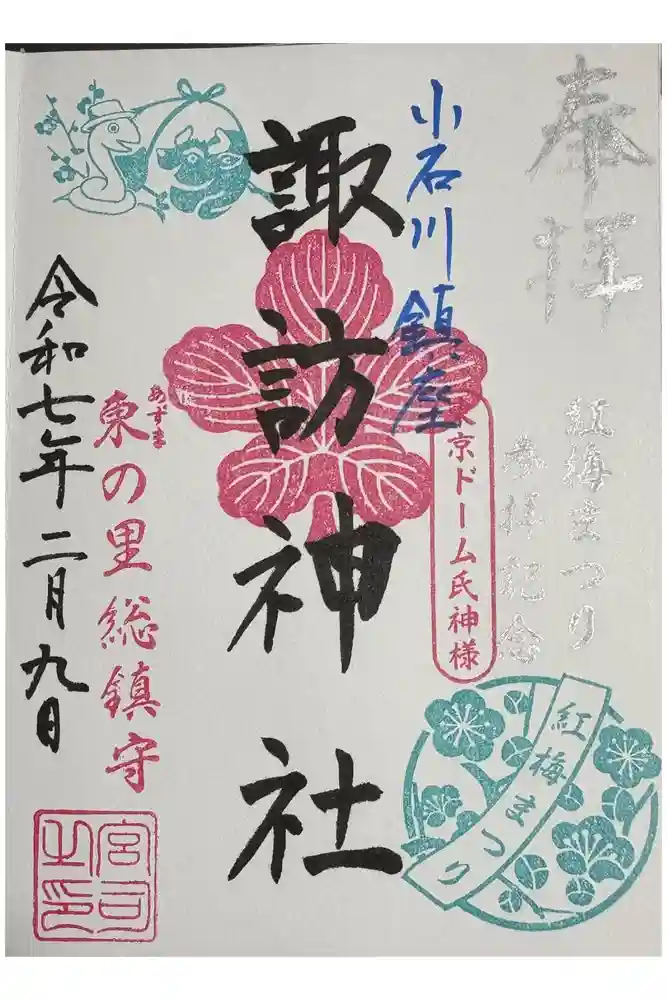 奉拝
紅梅まつり
参拝記念
紅梅まつり
小石川鎮座
東京ドーム氏神様
諏訪神社
あずま
東の里総鎮守
宮司之印
令和七年二月九日